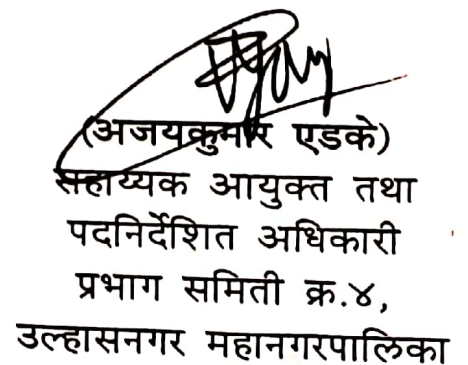 (अजयकुमार एडके)
सहाय्यक आयुक्त तथा
पदनिर्देशित अधिकारी
प्रभाग समिती क्र.४,
उल्हासनगर महानगरपालिका